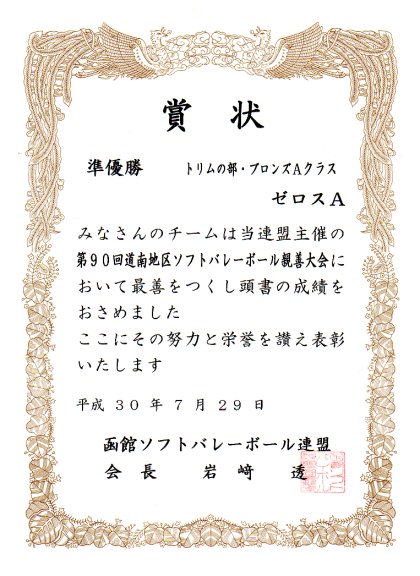 賞状
準優勝 トリムの部・ブロンズAクラス
ゼロスA
みなさんのチームは当連盟主催の
第90回道南地区ソフトバレーボール親善大会に
おいて最善をつくし頭書の成績を
おさめました
ここにその努力と栄誉を讃え表彰
いたします
平成 30 年 7 月 29 日
函館ソフトバレーボール連盟
会長 岩﨑 透